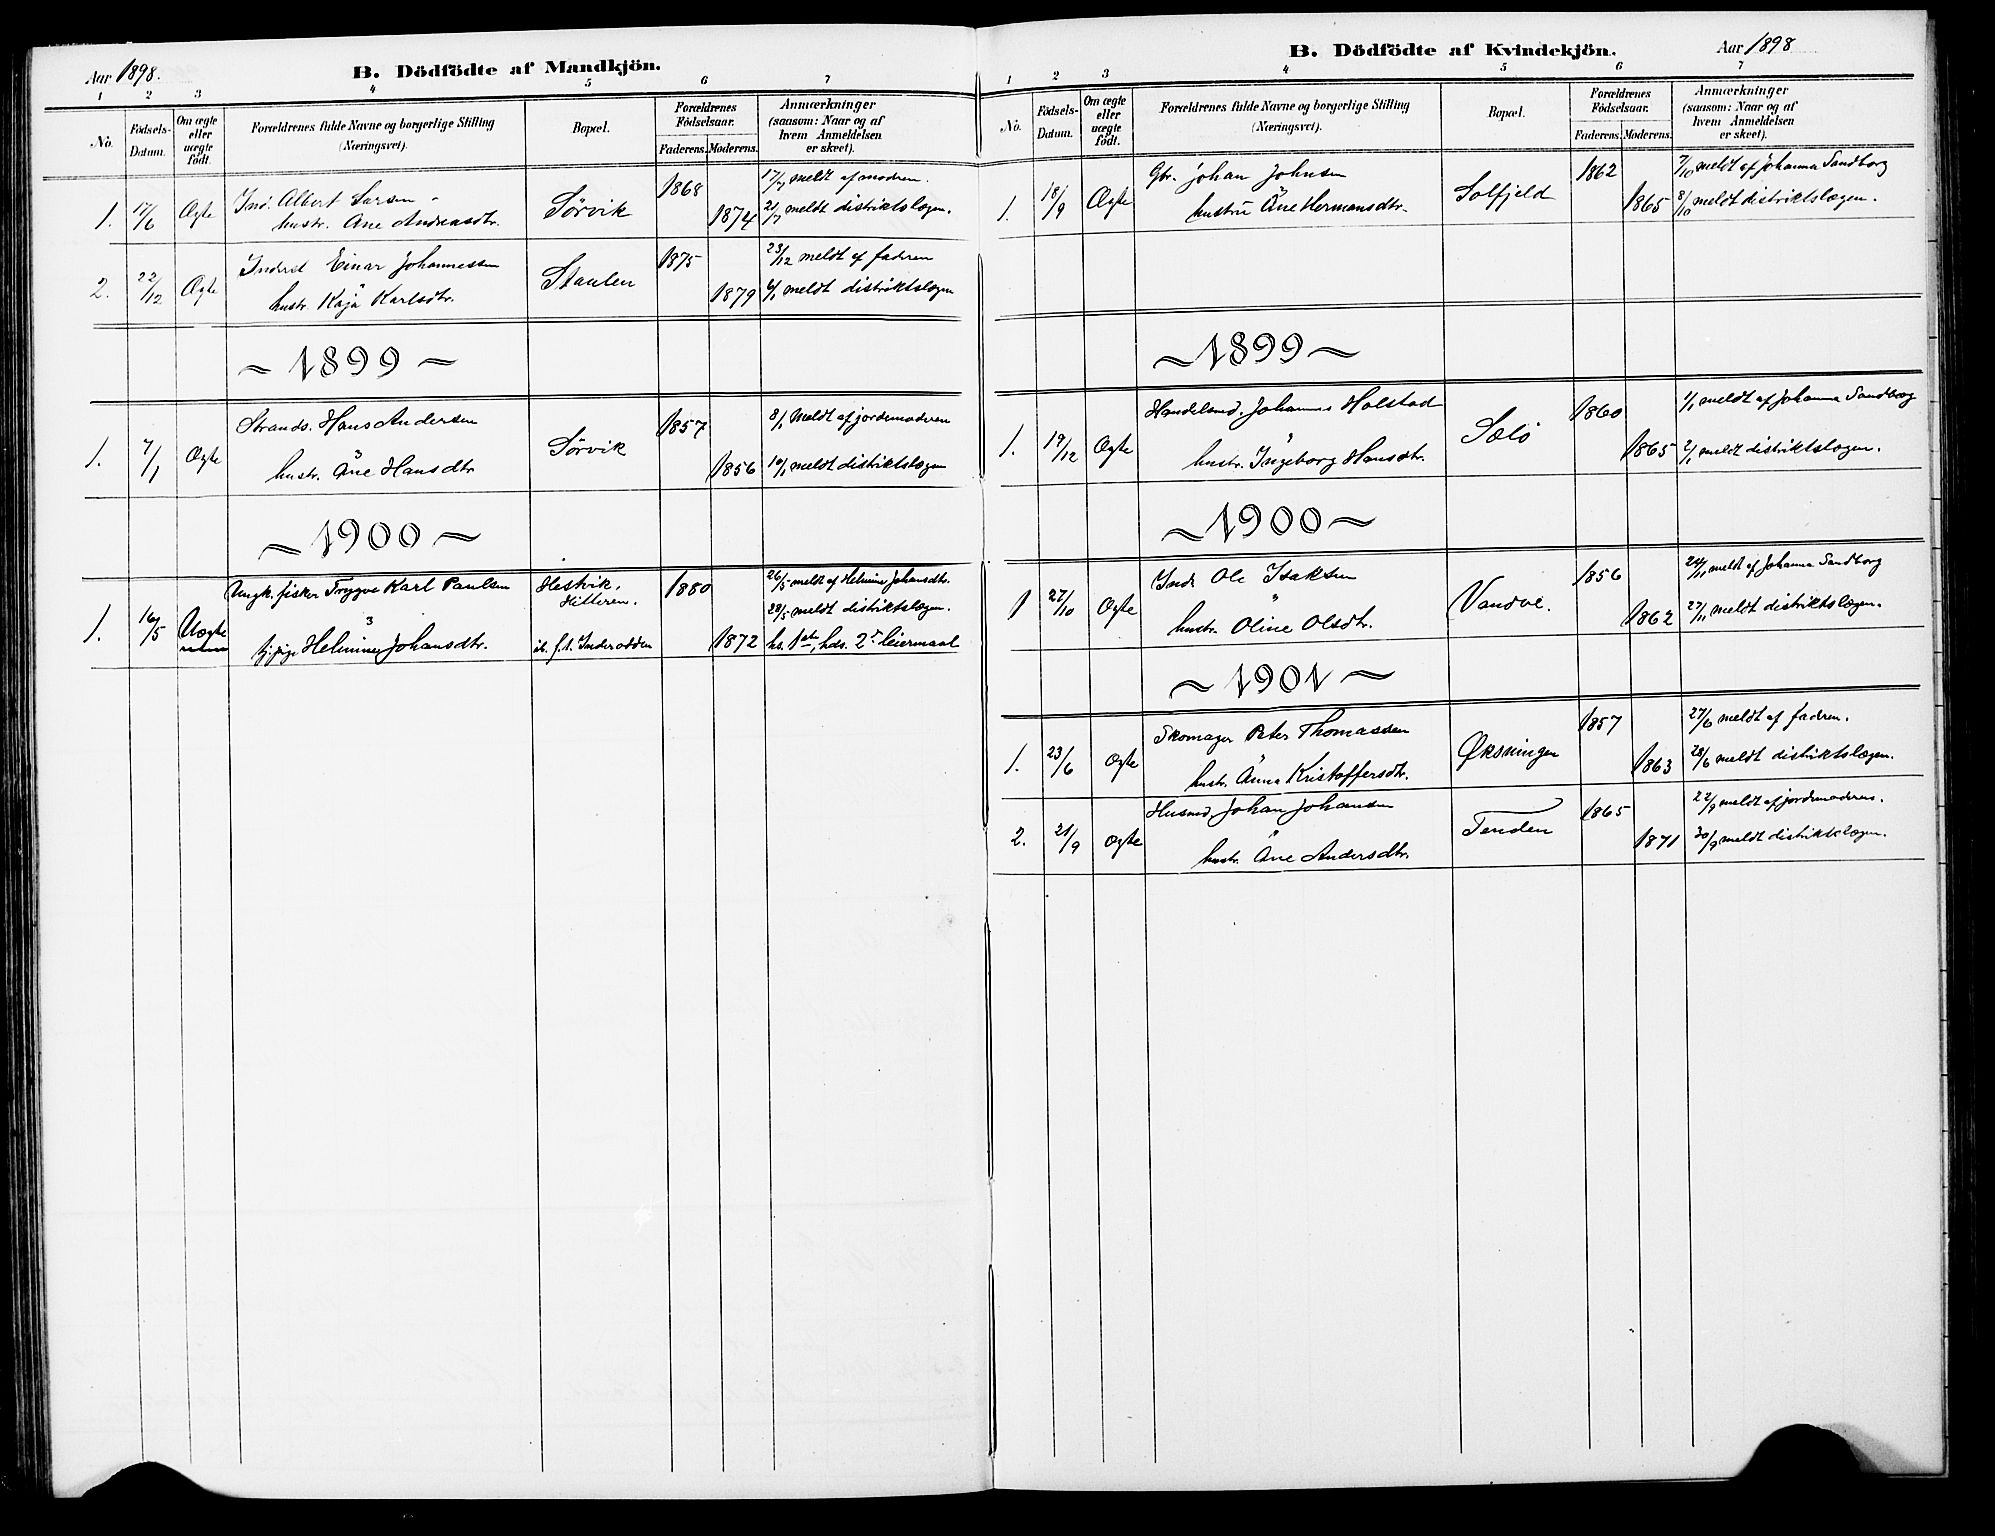 Aar 1898.
B. Dödfödte af Mandkjön.
1 2 3 4 5 6 7
No. Födsels-Datum. Om ægte eller uægte födt. Forældrenes fulde Navne og borgerlige Stilling (Næringsvei). Bopæl. Forældrenes Födselsaar. Faderens. Moderens. Anmærkninger (saasom: Naar og af hvem Anmeldelsen er skeet).
Ind. Albert Larsen 1868 17/7 meldt af modren.
1. 17/6 Ægte hustr. Ane Andreasdtr. Sørvik 1874 21/7 meldt distriktslægen.
Inderst Einar Johannessen 1875 23/12 meldt af fadren
2. 22/12 Ægte hustr. Kaja Karlsdtr. Staulen 1879 meldt distriktslægen
~ 1899 ~
Strands. Hans Andersen 1857 8/1 Meldt af jordemodren
1. 7/1 Ægte hustr. Ane Hansdtr Sørvik 1856 10/1 meldt distriktslægen
~ 1900 ~
Ungk. fisker Trygve Karl Paulsen Hestvik, Hitteren. 1880 26/5 meldt af Helmine Johansdtr.
28/5 meldt distriktslægen.
1. 16/5 Uægte pige Helmine Johansdtr. Inderodden 1872 hs. 1ste, hds. 2d leiermaal
B. Dödfödte af Kvindekjön.
Aar 1898
1 2 3 4 5 6 7
No. Födsels-Datum. Om ægte eller uægte födt. Forældrenes fulde Navne og borgerlige Stilling (Næringsvei). Bopæl. Forældrenes Födselsaar. Faderens. Moderens. Anmærkninger (saasom: Naar og af hvem Anmeldelsen er skeet).
Gbr. Johan Johnsen 1862 7/10 meldt af Johanna Sandborg
1. 18/9 Ægte hustru Ane Hermansdtr. Solfjeld 1865 8/10 meldt distriktslægen.
~ 1899 ~
Handelsmd. Johannes Holstad 1860 1/1 meldt af Johanna Sandborg
1. 19/12 Ægte hustr. Ingeborg Hansdtr. Sælø 1865 2/1 meldt distriktslægen.
~ 1900 ~
Inds Ole Isaksen 1856 24/11 meldt af Johanna Sandborg
1 27/10 Ægte hustr. Oline Olsdtr. Vandve. 1862 27/11 meldt distriktslægen.
~ 1901 ~
Skomager Peter Thomassen 1857 27/6 meldt af fadren.
1. 23/6 Ægte hustr. Anna Kristoffersdtr. Øksningen 1863 28/6 meldt distriktslægen.
Husmd. Johan Johansen 1865 22/9 meldt af jordemoderen.
2. 21/9 Ægte hustr. Ane Andersdtr. Tenden 1871 30/9 meldt distriktslægen.